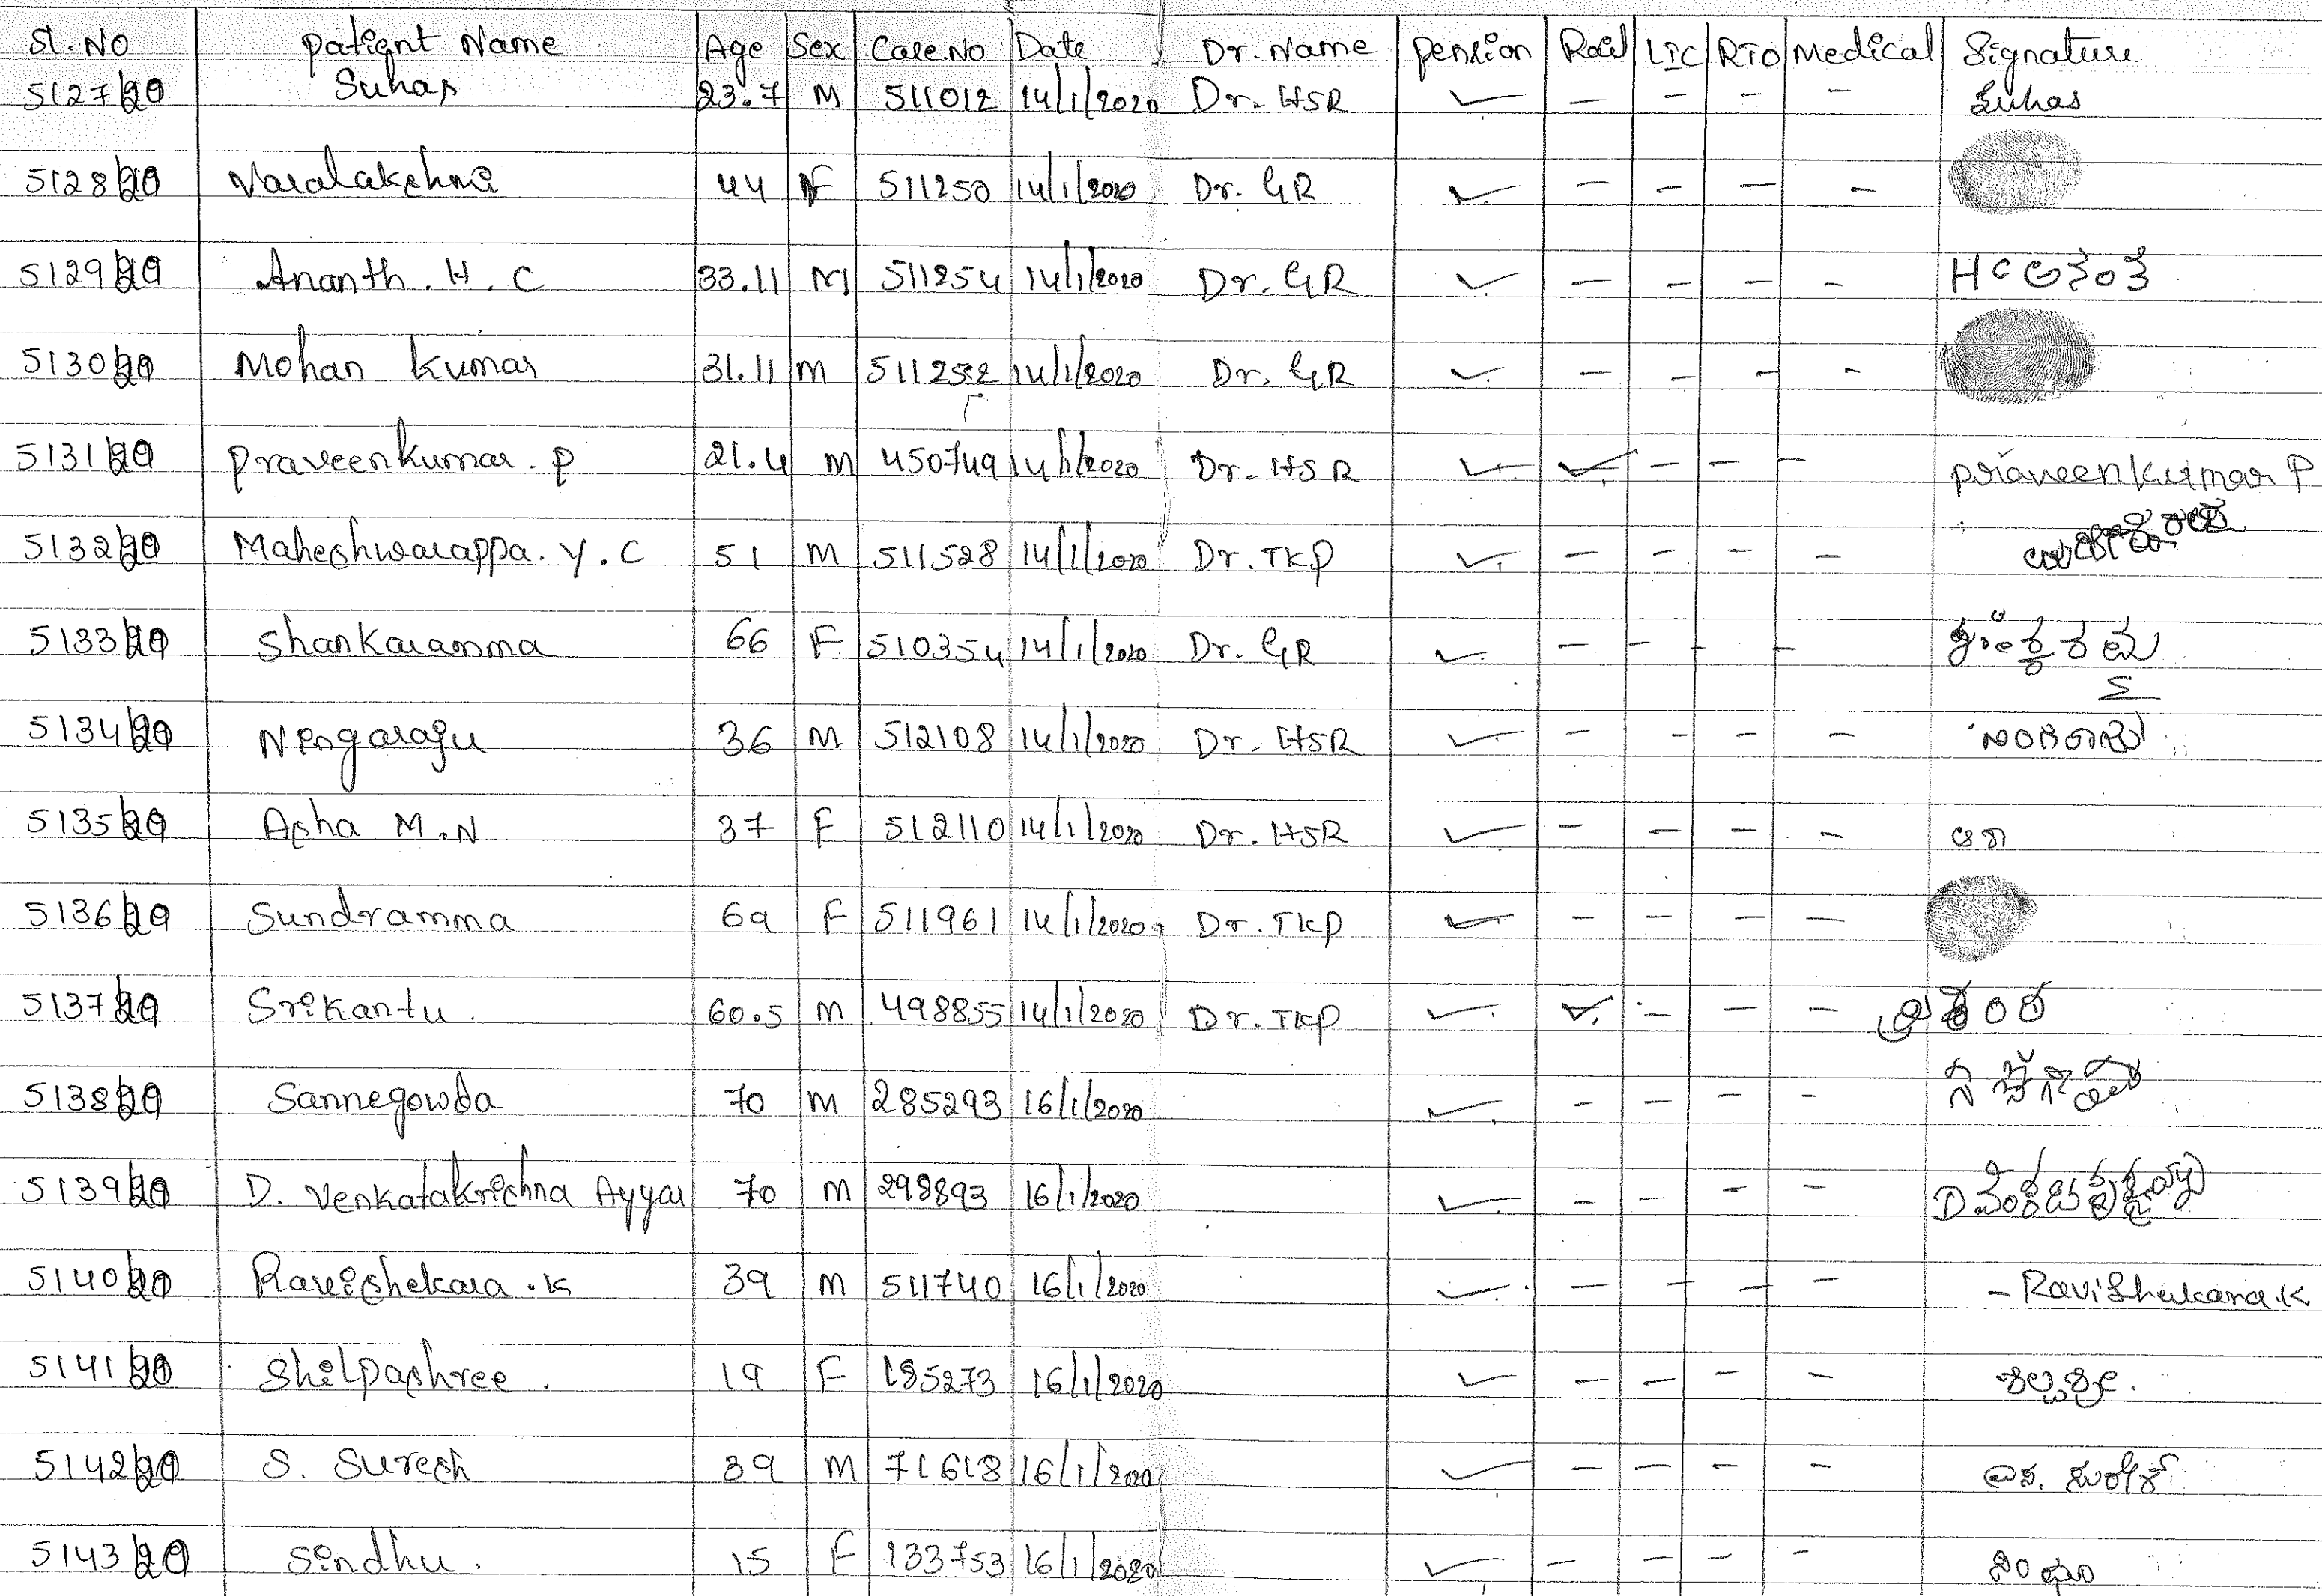 Sl.No Patient Name Age Sex Case.No Date Dr. Name Pension Rail LIC RTO Medical Signature
5127/20 Suhas 23.7 M 511012 14/1/2020 Dr. HSR ✓ – – – – Suhas
5128/20 Varalakshmi 44 F 511250 14/1/2020 Dr. GR ✓ – – – –
5129/20 Ananth. H. C 33.11 M 511254 14/1/2020 Dr. GR ✓ – – – – H C ಅನಂತ
5130/20 Mohan Kumar 31.11 M 511252 14/1/2020 Dr. GR ✓ – – – –
5131/20 Praveenkumar. P 21.4 M 450749 14/1/2020 Dr. HSR ✓ ✓ – – – Praveenkumar P
5132/20 Maheshwarappa. Y. C 51 M 511528 14/1/2020 Dr. TKP ✓ – – – –
5133/20 Shankaramma 66 F 510354 14/1/2020 Dr. GR ✓ – – – –
5134/20 Ningaraju 36 M 512108 14/1/2020 Dr. HSR ✓ – – – – ನಿಂಗರಾಜು
5135/20 Asha M.N 37 F 512110 14/1/2020 Dr. HSR ✓ – – – – ಆಶಾ
5136/20 Sundramma 69 F 511961 14/1/2020 Dr. TKP ✓ – – – –
5137/20 Srikantu. 60.5 M 498855 14/1/2020 Dr. TKP ✓ ✓ – – –
5138/20 Sannegowda 70 M 285293 16/1/2020 ✓ – – – –
5139/20 D. Venkatakrishna Ayyar 70 M 298893 16/1/2020 ✓ – – – –
5140/20 Ravishekara. K 39 M 511740 16/1/2020 ✓ – – – – – RaviShekara.K
5141/20 Shilpashree. 19 F 185273 16/1/2020 ✓ – – – – ಶಿಲ್ಪಶ್ರೀ.
5142/20 S. Suresh 39 M 71618 16/1/2020 ✓ – – – – ಎಸ. ಸುರೇಶ್
5143/20 Sindhu. 15 F 133753 16/1/2020 ✓ – – – – ಸಿಂಧೂ